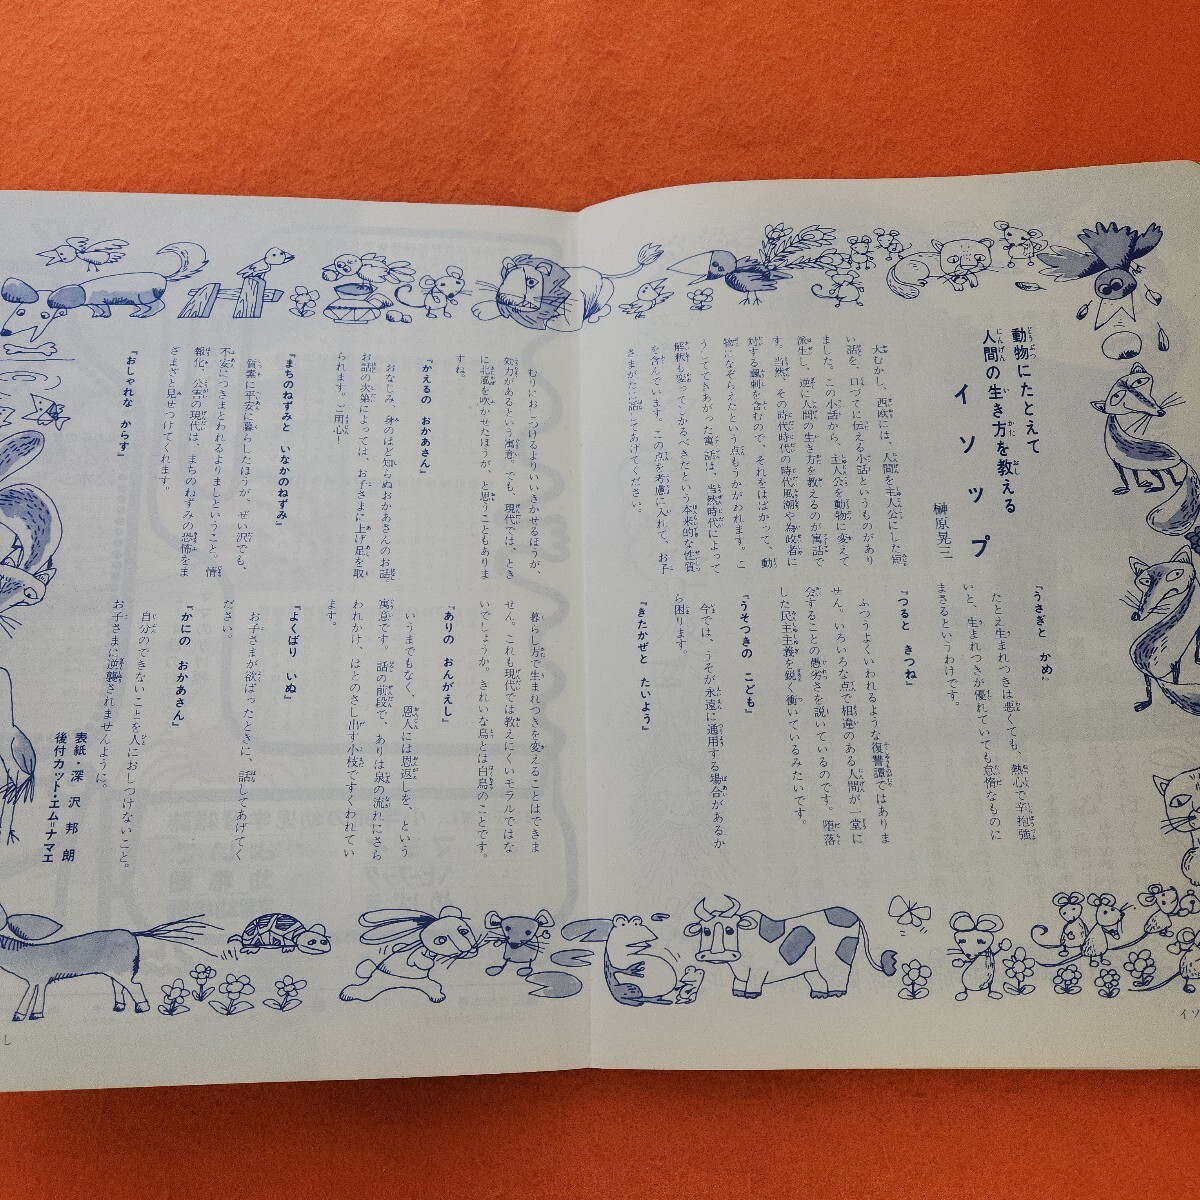 動物にたとえて
人間の生き方を教える
イソップ
榊原晃三
大むかし、西欧には、人間を主人公にした短
い話を、口づてに伝える小話というものがあり
ました。この小話から、主人公を動物に変えて
派生し、逆に人間の生き方を教えるのが寓話で
す。当然、その時代時代の時代風潮や為政者に
対する諷刺を含むので、それをはばかって、動
物になぞらえたという点もうかがわれます。こ
うしてできあがった寓話は、当然時代によって
解釈も変ってしかるべきだという本来的な性質
を含んでいます。この点を考慮に入れて、お子
さまがたに話してあげてください。
『うさぎと かめ』
たとえ生まれつきは悪くても、熱心で辛抱強
いと、生まれつきが優れていても怠惰なものに
まさるというわけです。
『つると きつね』
ふつうよくいわれるような復讐譚ではありま
せん。いろいろな点で相違のある人間が一堂に
会することの愚劣さを説いているのです。堕落
した民主主義を鋭く衝いているみたいです。
『うそつきの こども』
今では、うそが永遠に通用する場合があるか
ら困ります。
『きたかぜと たいよう』
むりにおしつけるよりいいきかせるほうが、
効力があるという寓意。でも、現代では、とき
に北風を吹かせたほうが、と思うこともありま
すね。
『かえるの おかあさん』
おなじみ、身のほど知らぬおかあさんのお話。
お話の次第によっては、お子さまに上げ足を取
られます。ご用心！
『まちのねずみと いなかのねずみ』
質素に平安に暮らしたほうが、ぜい沢でも、
不安につきまとわれるよりましということ。情
報化、公害の現代は、まちのねずみの恐怖をま
ざまざと見せつけてくれます。
『おしゃれな からす』
暮らし方で生まれつきを変えることはできま
せん。これも現代では教えにくいモラルではな
いでしょうか。きれいな鳥とは白鳥のことです。
『ありの おんがえし』
いうまでもなく、恩人には恩返しを、という
寓意です。話の前段で、ありは泉の流れにさら
われかけ、はとのさし出す小枝ですくわれてい
ます。
『よくばり いぬ』
お子さまが欲ばったときに、話してあげてく
ださい。
『かにの おかあさん』
自分のできないことを人におしつけないこと。
お子さまに逆襲されませんように。
表紙・深沢邦朗
後付カット・エム＝ナマエ
イソ
し